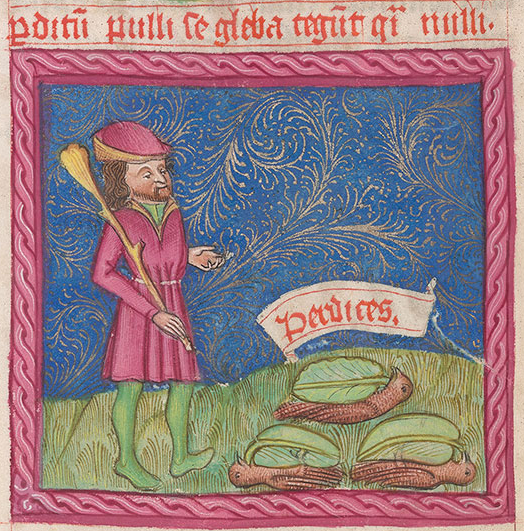 ꝑdicū pulli se gleba tegūt qr̄ nulli.
Perdices.